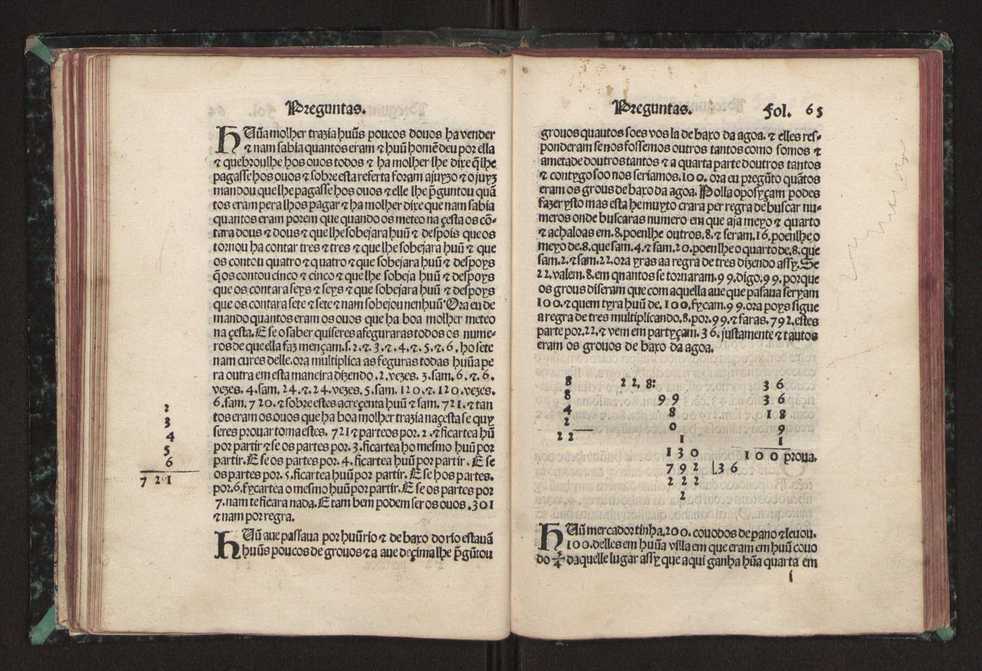 Preguntas.
HUũa molher trazia huũs poucos douos ha vender
& nam sabia quantos eram & huũ homẽ deu por ella
& quebroulhe hos ouos todos & ha molher lhe dixe q̃ lhe
pagasse hos ouos & sobre esta referta foram a juyzo & o juyz
mandou que lhe pagasse hos ouos & elle lhe p̃guntou quã
tos eram pera lhos pagar & ha molher dixe que nam sabia
quantos eram porem que quando os meteo na çesta os cõ-
tara dous & dous & que lhe sobejara huũ & despois que os
tornou ha contar tres & tres & que lhe sobejara huũ & que
os contou quatro & quatro & que sobejara huũ & despoys
q̃ os contou cinco & cinco & que lhe sobeja huũ & despoys
que os contara seys & seys & que sobejara huũ & despoys
que os contara sete & sete & nam sobejou nenhuũ Ora eu de
mando quantos eram os ouos que ha boa molher meteo
na çesta. E se o saber quiseres afeguraras todos os nume-
ros de que ella faz mençam .s. 2. & 3. & 4. & 5. & 6. ho sete
nam cures delle. ora multiplica as feguras todas huũa pe
ra outra em esta maneira dizendo .2. vezes. 3. sam. 6. & 6.
vezes. 4. sam. 24. & 24. vezes. 5. sam. 120. & 120. vezes.
6. sam. 720. & sobre estes acreçenta huũ & sam. 721. & tan
tos eram os ouos que ha boa molher trazia na çesta se quy
seres prouar toma estes. 721 & parteos por. 2. & ficartea hũ
por partir & se os partes por. 3. ficartea ho mesmo huũ por
partir. E se os partes por. 4. ficartea huũ por partir. E se
os partes por. 5. ficartea huũ por partir. E se hos partes.
por. 6. fycartea o mesmo huũ por partir. E se os partes por
7. nam te ficara nada. E tam bem podem ser os ouos .301
& nam por regra.
2
3
4
5
6
721
HUũ aue passaua por huũ rio & de baxo do rio estauã
huũs poucos de grouos & a aue de çima lhe p̃gũtou
Preguntas. Fol. 65
grouos quãutos soes vos la de baxo da agoa. & elles res-
ponderam se nos fossemos outros tantos como somos &
ametade doutros tantos & a quarta parte doutros tantos
& contygo soo nos seriamos. 100. ora eu pregũto quãtos
eram os grous de baxo da agoa. Polla oposyçam podes
fazer ysto mas esta he muyto crara per regra de buscar nu-
meros onde buscaras numero em que aja meyo & quarto
& achaloas em. 8. poenlhe outros. 8. & seram. 16. poenlhe o
meyo de. 8. que sam. 4. & sam. 20. poenlhe o quarto de. 8. que
sam. 2. & sam. 22. ora yras aa regra de tres dizendo assy. Se
22. valem. 8. em quantos se tornaram. 99. digo. 99. porque
os grous diseram que com aquella aue que pasaua seryam
100. & quem tyra huũ de. 100. fycam. 99. ora poys sigue
a regra de tres multiplicando. 8. por. 99. & faras. 792. estes
parte por. 22. & vem em partyçam. 36. justamente & tautos
eram os grouos de baxo da agoa.
8 22. 8: 36
8 99 36
4 8 18
2 0 9
22 1 1
130 100 prova.
792 |36
222
2
HUũ mercador tinha. 200. couodos de pano & leuou.
100. delles em huũa villa em que eram em huũ couo
do daquelle lugar assy que aqui ganha hũa quarta em
i